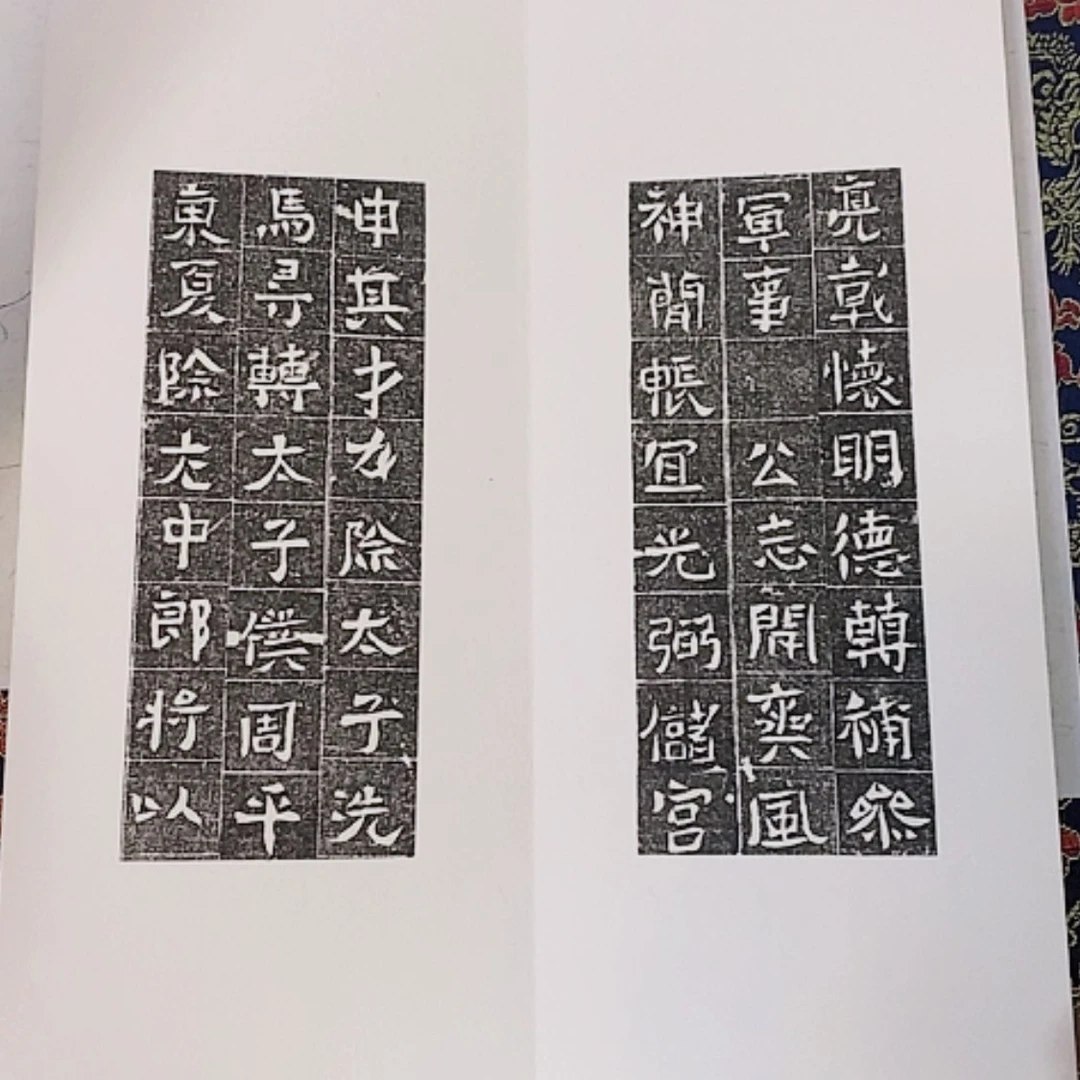 亮彰懷明德轉補參
軍事 公志開爽風
神簡帳宜光弼儲宮
申其才除太子洗
馬尋轉太子僕周平
東夏除左中郎将以